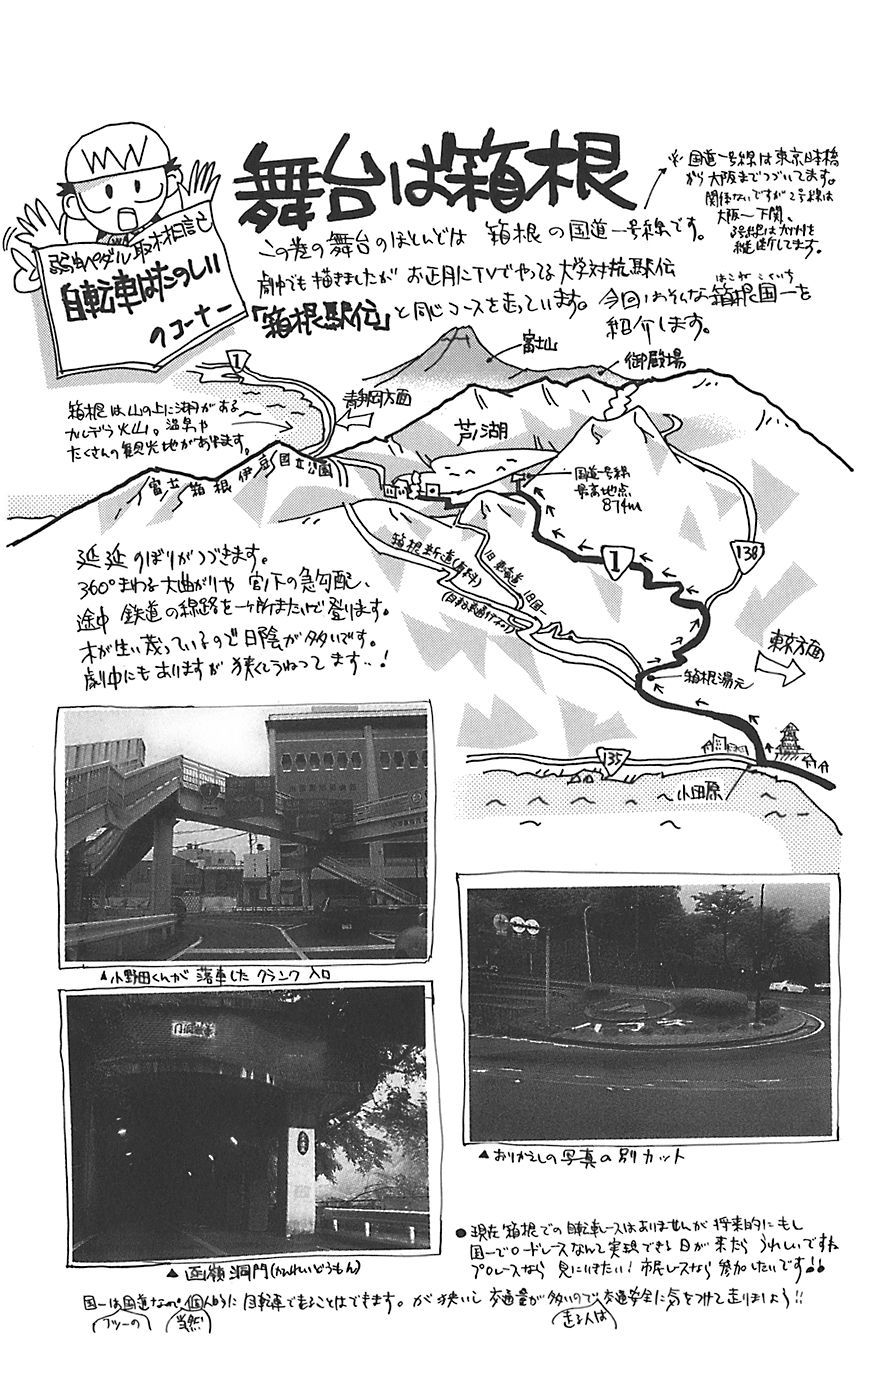 舞台は箱根
弱虫ペダル取材日記
自転車はたのしい
のコーナー
※国道一号線は東京日本橋
から大阪までつづいてます。
関係ないですが2号線は
大阪〜下関、
3号線は九州を
縦断してます。
この巻の舞台のほとんどは 箱根の国道一号線です。
劇中でも描きましたが お正月にTVでやってる大学対抗駅伝
「箱根駅伝」と同じコースを走っています。今回はそんな箱根国一を
はこねこくいち
紹介します。
1
富士山
御殿場
静岡方面
箱根は山の上に湖がある
カルデラ火山。温泉や
たくさんの観光地があります。
芦ノ湖
富士箱根伊豆国立公園
国道一号線
最高地点
874m
箱根新道(有料)
旧東海道 旧国一
1
138
延延のぼりがつづきます。
360°まわる大曲がりや 宮ノ下の急勾配、
途中 鉄道の線路を一ヶ所またいで登ります。
木が生い茂っているので日陰が多いです。
劇中にもありますが 狭くてうねってます…!
東京方面
箱根湯元
135
小田原
▲小野田くんが 落車した クランク入口
ハコネ
▲おりかえしの写真の別カット
▲函嶺洞門(かんれいどうもん)
●現在 箱根での自転車レースはありませんが 将来的にもし
国一でロードレースなんて実現できる日が来たら うれしいですね
プロレースなら 見にいきたい! 市民レースなら 参加したいです!!
国一は国道なので 個人的に 自転車で走ることはできます。が 狭いし 交通量が多いので 交通安全に気をつけて走りましょう!!
フツーの
当然
走る人は